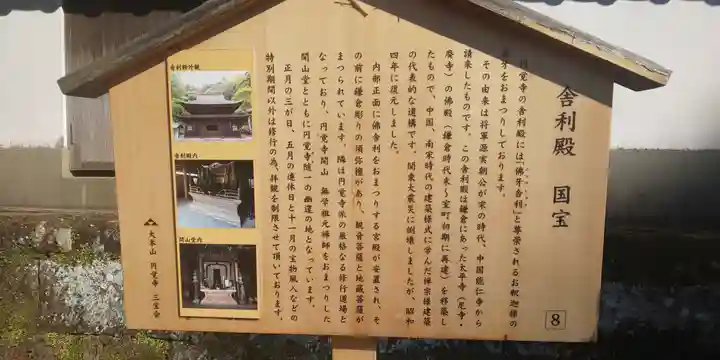 舎利殿 国宝
円覚寺の舎利殿には「佛牙舎利」と尊崇されるお釈迦様の
歯牙をおまつりしております。
その由来は将軍源実朝公が宋の時代、中国能仁寺から
請来したものです。この舎利殿は鎌倉にあった太平寺(尼寺・
廃寺)の佛殿(鎌倉時代末~室町初期に再建)を移築し
たもので、中国、南宋時代の建築様式に学んだ禅宗様建築
の代表的な遺構です。関東大震災に倒壊しましたが、昭和
四年に復元しました。
内部正面に佛舎利をおまつりする宮殿が安置され、そ
の前に鎌倉彫りの須弥壇があり、観音菩薩と地蔵菩薩が
まつられています。隣は円覚寺派の厳格なる修行道場と
なっており、円覚寺開山 無学祖元禅師をおまつりした
開山堂とともに円覚寺随一の幽邃の地となっています。
正月の三が日、五月の連休日と十一月の宝物風入などの
特別期間以外は修行の為、拝観を制限させて頂いております。
舎利殿外観
舎利殿内
開山堂内
大本山 円覚寺 三宝会
8